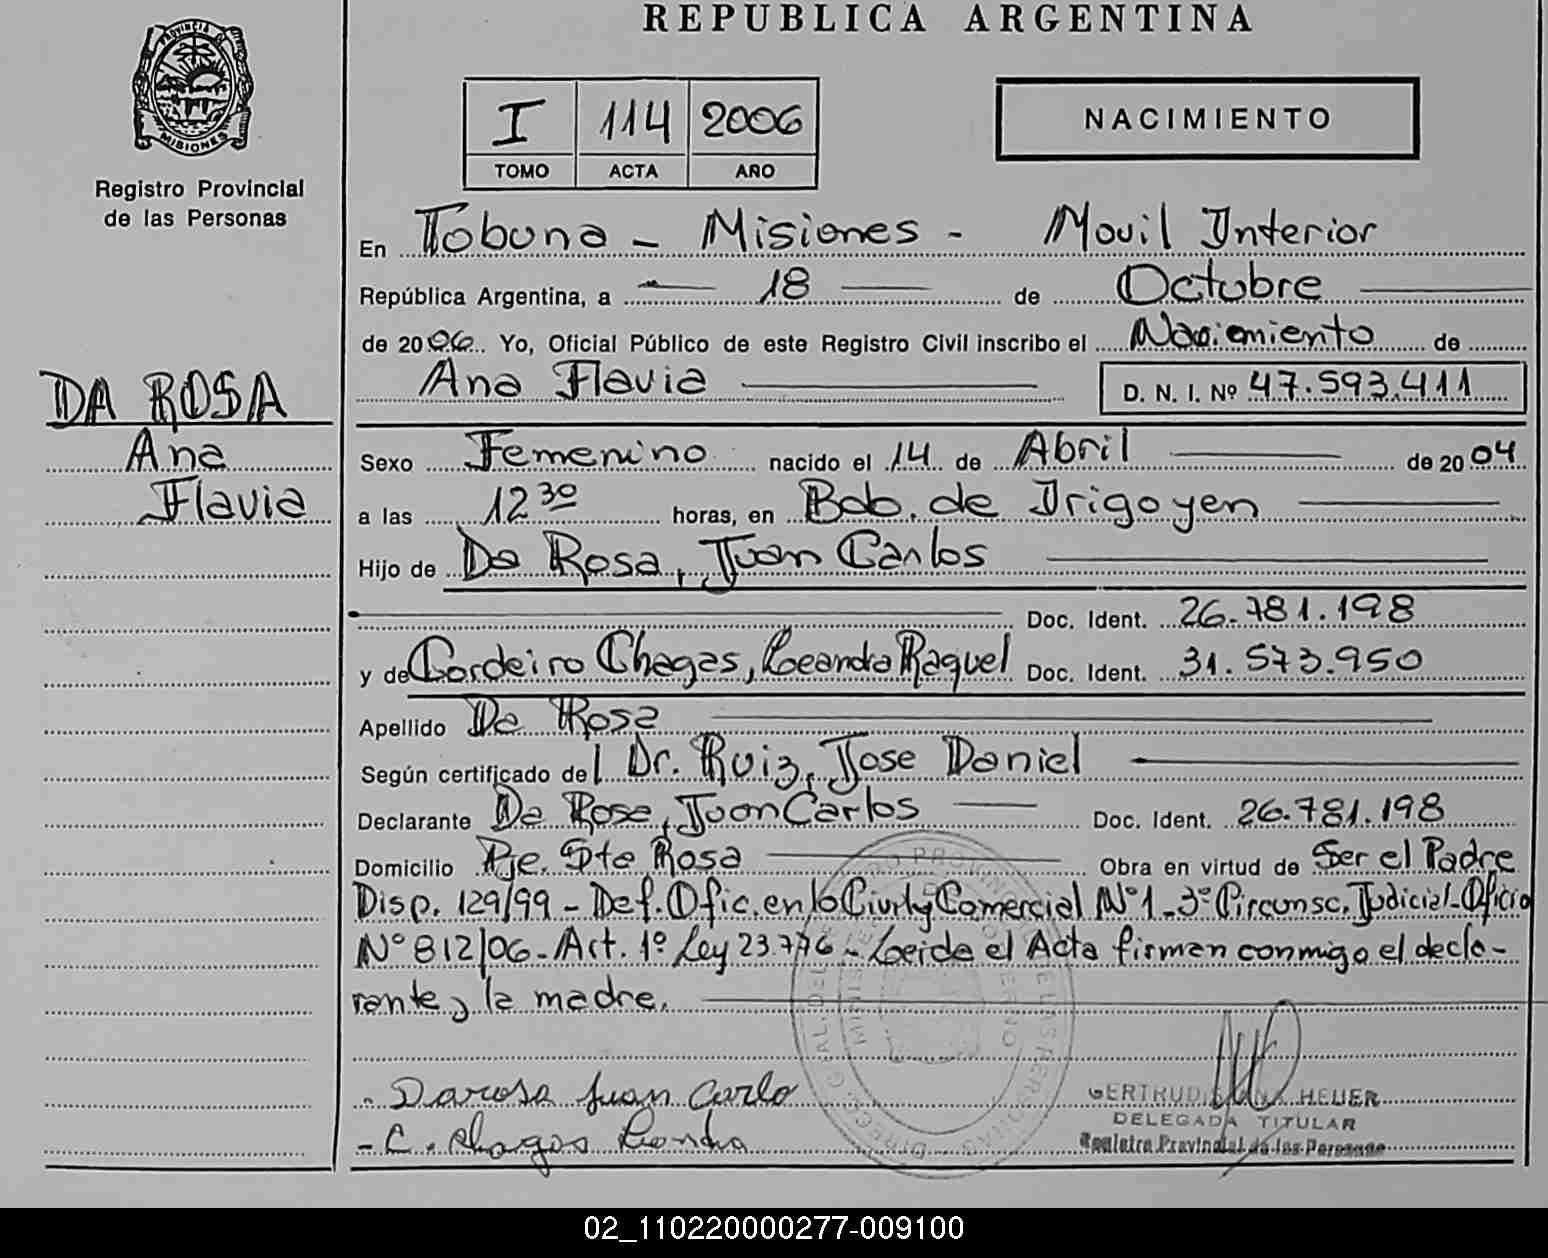 REPUBLICA ARGENTINA
PROVINCIA DE
MISIONES
Registro Provincial
de las Personas
I 114 2006
TOMO ACTA AÑO
NACIMIENTO
En Tobuna - Misiones - Movil Interior
República Argentina, a 18 de Octubre
de 2006. Yo, Oficial Público de este Registro Civil inscribo el Nacimiento de
Ana Flavia D. N. I. Nº 47.593.411
DA ROSA
Ana
Flavia
Sexo Femenino nacido el 14 de Abril de 2004
a las 12 30 horas, en Bdo. de Irigoyen
Hijo de Da Rosa, Juan Carlos
Doc. Ident. 26.781.198
y de Cordeiro Chagas, Leandra Raquel Doc. Ident. 31.573.950
Apellido Da Rosa
Según certificado del Dr. Ruiz, Jose Daniel
Declarante Da Rosa, Juan Carlos Doc. Ident. 26.781.198
Domicilio Pje. Sta Rosa Obra en virtud de Ser el Padre
Disp. 129/99 - Def. Ofic. en lo Civil y Comercial Nº 1 - 3º Circunsc. Judicial - Oficio
Nº 812/06 - Art. 1º Ley 23.776 - Leida el Acta firman conmigo el decla-
rante y la madre.
Darosa Juan Carlo
- C. Chagas Leandra
HEUER
DELEGADA TITULAR
Registro Provincial de las Personas
02_110220000277-009100